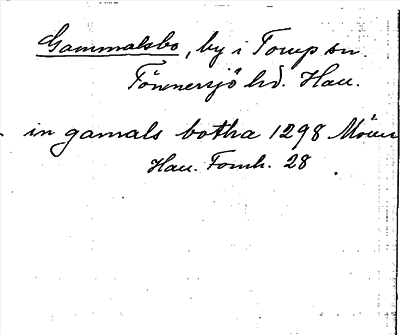 Gammalsbo, by i Torup sn.
Tönnersjö hd. Hall.
in gamals botha 1298 Möller
Hall. Fornh. 28